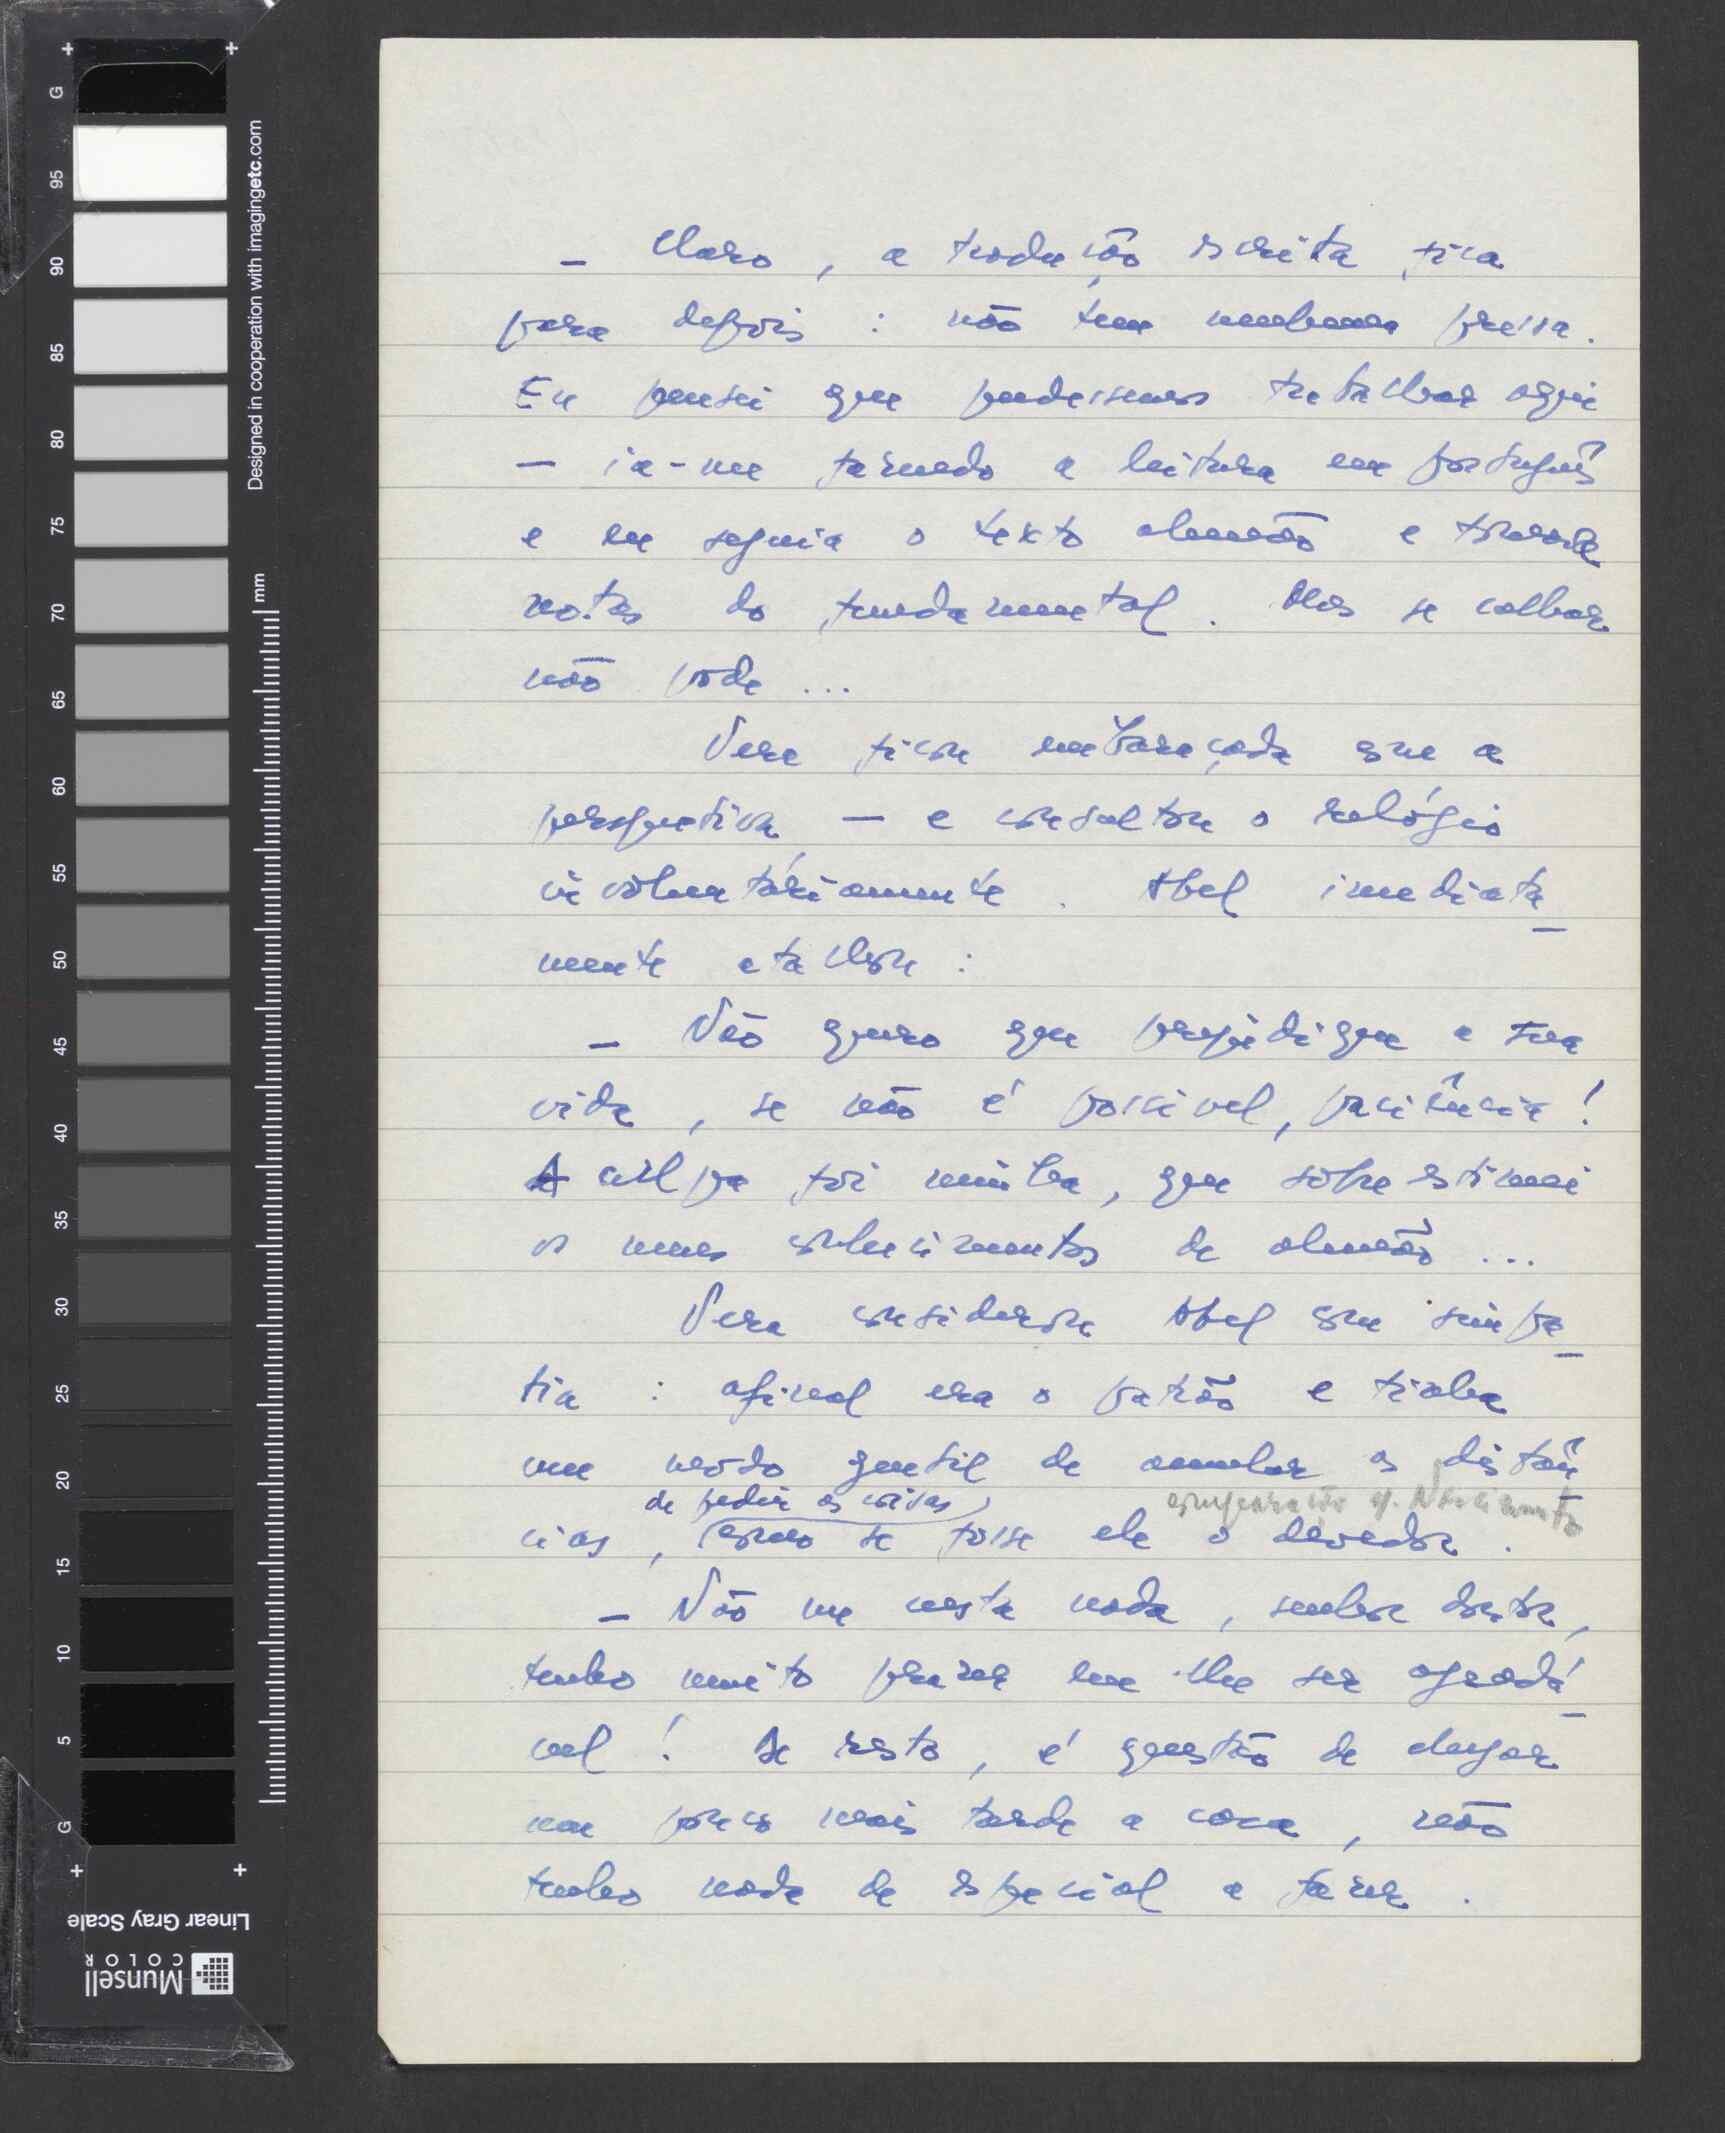 — Claro, a tradução escrita fica
para depois: não tem nenhuma pressa.
Eu pensei que pudessemos trabalhar aqui
— ia-me fazendo a leitura em português
e eu seguia o texto alemão e tomava
notas do fundamental. Mas se calhar
não pode...
Vera ficou embaraçada com a
perspectiva — e consultou o relógio
involuntáriamente. Abel imediata-
mente atalhou:
— Não quero que prejudique a sua
vida, se não é possivel, paciência!
A culpa foi minha, que sobrestimei
os meus conhecimentos de alemão...
Vera considerou Abel com simpa-
tia: afinal era o patrão e tinha
um modo gentil de anular as distân
de pedir as coisas,
cias, como se fosse ele o devedor.
comparação c/. Nascimento
— Não me custa nada, senhor doutor,
tenho muito prazer em lhe ser agradá-
vel! De resto, é questão de chegar
um pouco mais tarde a casa, não
tenho nada de especial a fazer.
G
95
90
85
80
75
70
65
60
55
50
45
40
35
30
25
20
15
10
5
G
Designed in cooperation with imagingetc.com
mm
Linear Gray Scale
Munsell
COLOR